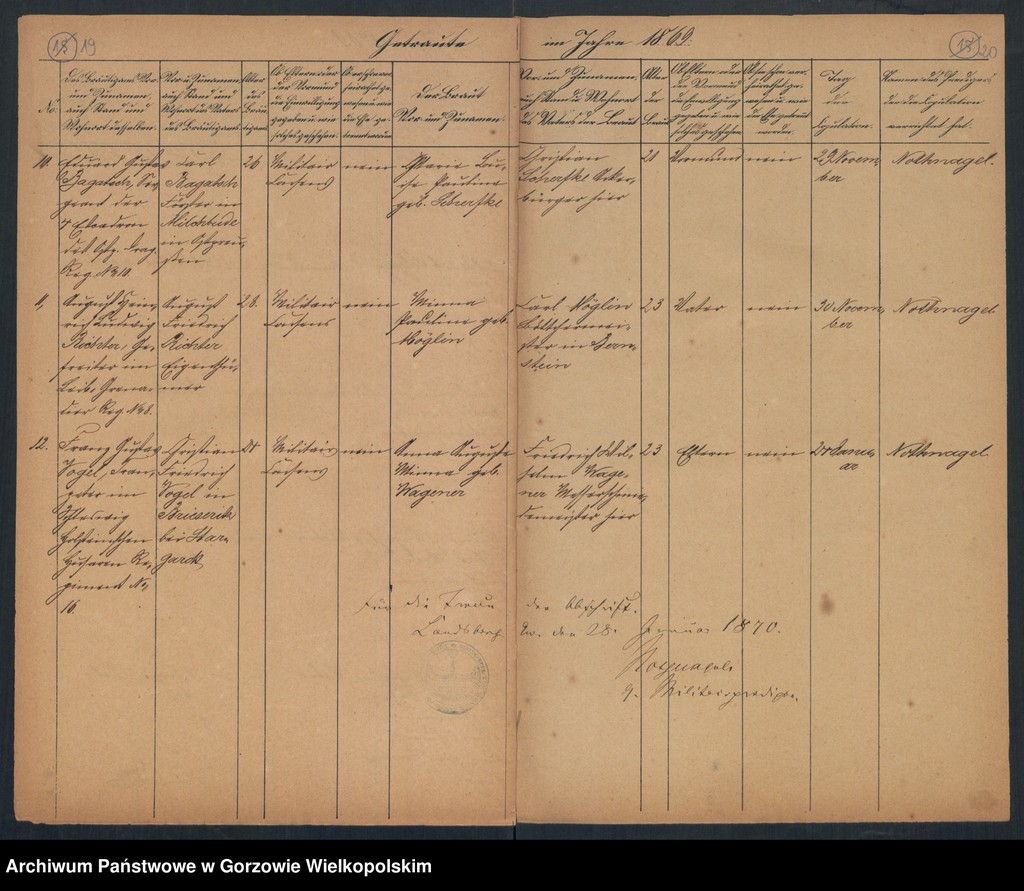 18 19
Getraute im Jahre 1869.
18 20
No.
Des Bräutigams Vor-
und Zunamen,
auch Stand und
Wohnort desselben.
Vor u. Zunamen
auch Stand und
Wohnort des Vaters
des Bräutigams
Alter
des
Bräu-
tigams
Ob Eltern oder
der Vormund
die Einwilligung
gegeben u. wie
solches geschehen.
Der Braut
Vor- und Zunamen
Vor- und Zunamen
auch Stand u. Wohnort
des Vaters der Braut
Alter
der
Braut
Ob Eltern oder
der Vormund
die Einwilligung
gegeben u. wie
solches geschehen
Tag
der
Copulation
Namen des Predigers
der die Copulation
verrichtet hat.
10.
Eduard Gustav
Bagatsch, Ser-
geant der
4 Escadron
des Ostpr. Drag.
Reg. No 10.
Carl
Bagatsch
Förster in
Milchbude
in Ostpreu-
ßen
26
Militair
Consens
nein
Marie Lou-
ise Pauline
geb. Scherfke
Christian
Scherfke Acker-
bürger hier
21
Vormund
nein
23 Novem-
ber
Nothnagel.
11,
August Hein-
rich Ludwig
Richter, Ge-
freiter im
Leib-Grena-
dier Reg. No 8.
August
Friedrich
Richter
Eigenthü-
mer
28.
Militair
Consens
nein
Minna
Pauline geb.
Höglin
Carl Höglin
Böttchermei-
ster in Bern-
stein
23
Vater
nein
30 Novem-
ber
Nothnagel.
12.
Franz Gustav
Vogel,
im
Schleswig
Holsteinschen
Husaren Re-
giment No
16.
Christian
Friedrich
Vogel in
bei Star-
gardt
Militair
Consens
nein
Anna Auguste
Minna geb.
Wagener
Friedrich Wil-
helm Wage-
ner Messerschmie-
demeister hier
23
Eltern
nein
Nothnagel
Für die Treue der Abschrift.
Landsberg a/w. den 28. Januar 1870.
Nothnagel
Militairprediger.
Archiwum Państwowe w Gorzowie Wielkopolskim